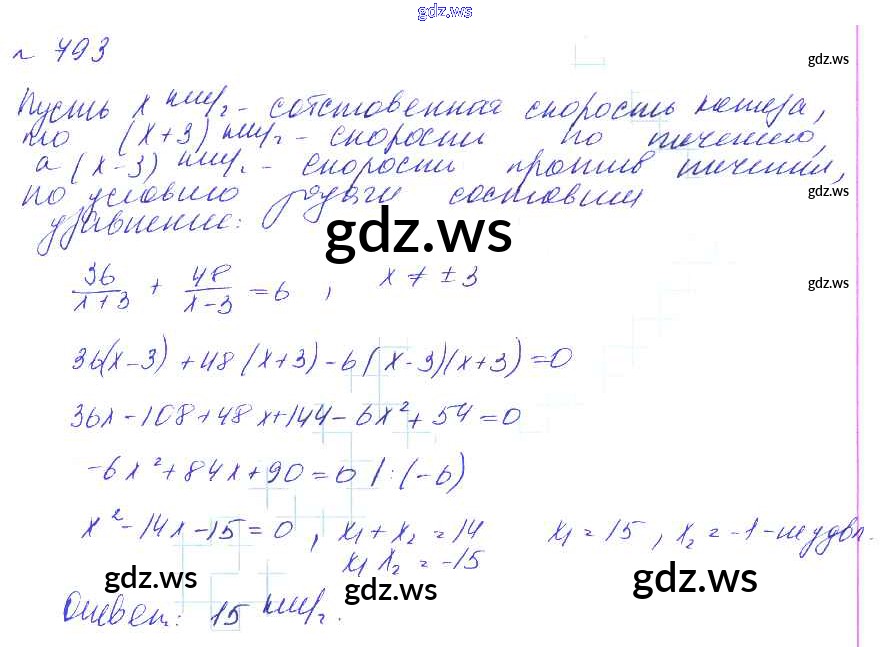 gdz.ws
№ 793
gdz.ws
Пусть x км/ч - собственная скорость катера,
то (x+3) км/ч - скорости по течению,
а (x-3) км/ч - скорости против течения,
gdz.ws
по условию задачи составим
уравнение:
gdz.ws
36/(x+3) + 48/(x-3) = 6 , x ≠ ±3
gdz.ws
36(x-3) + 48(x+3) - 6(x-3)(x+3) = 0
36x - 108 + 48x + 144 - 6x² + 54 = 0
-6x² + 84x + 90 = 0 | :(-6)
x² - 14x - 15 = 0 , x₁ + x₂ = 14 x₁ = 15 , x₂ = -1 - не удвл.
x₁ x₂ = -15
gdz.ws gdz.ws gdz.ws
Ответ: 15 км/ч.